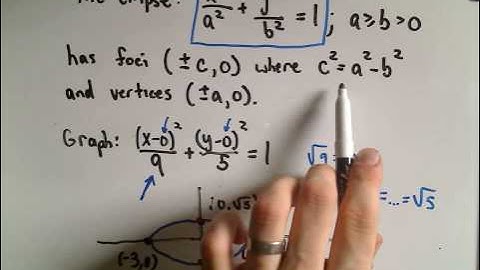 The ellipse: x²/a² + y²/b² = 1 ; a ≥ b > 0
has foci (±c, 0) where c² = a² - b²
and vertices (±a, 0).
Graph: (x-0)²/9 + (y-0)²/5 = 1
√9 =
= ... = √5
(0, √5)
(-3, 0)